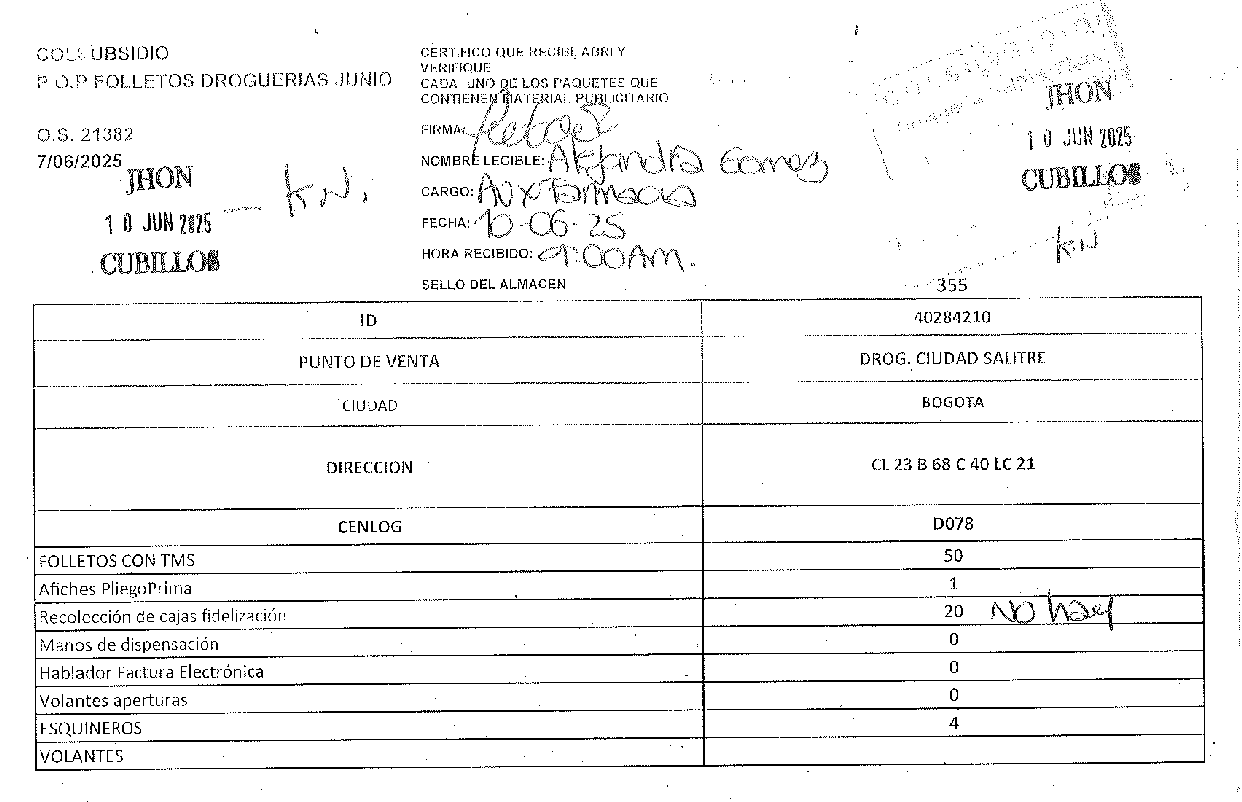 COLSUBSIDIO
P.O.P FOLLETOS DROGUERIAS JUNIO
O.S. 21382
7/06/2025
JHON
10 JUN 2025
CUBILLOS
K.N.
CERTIFICO QUE RECIBI, ABRI Y
VERIFIQUE
CADA UNO DE LOS PAQUETES QUE
CONTIENEN MATERIAL PUBLICITARIO
FIRMA:
NOMBRE LECIBLE: Alejandra Gomez
CARGO: Aux Farmacia
FECHA: 10-06-25
HORA RECIBIDO: 9:00AM.
SELLO DEL ALMACEN
JHON
10 JUN 2025
CUBILLOS
KN
355
ID 40284210
PUNTO DE VENTA DROG. CIUDAD SALITRE
CIUDAD BOGOTA
DIRECCION CL 23 B 68 C 40 LC 21
CENLOG D078
FOLLETOS CON TMS 50
Afiches PliegoPrima 1
Recolección de cajas fidelización 20 NO hay
Manos de dispensación 0
Hablador Factura Electrónica 0
Volantes aperturas 0
ESQUINEROS 4
VOLANTES